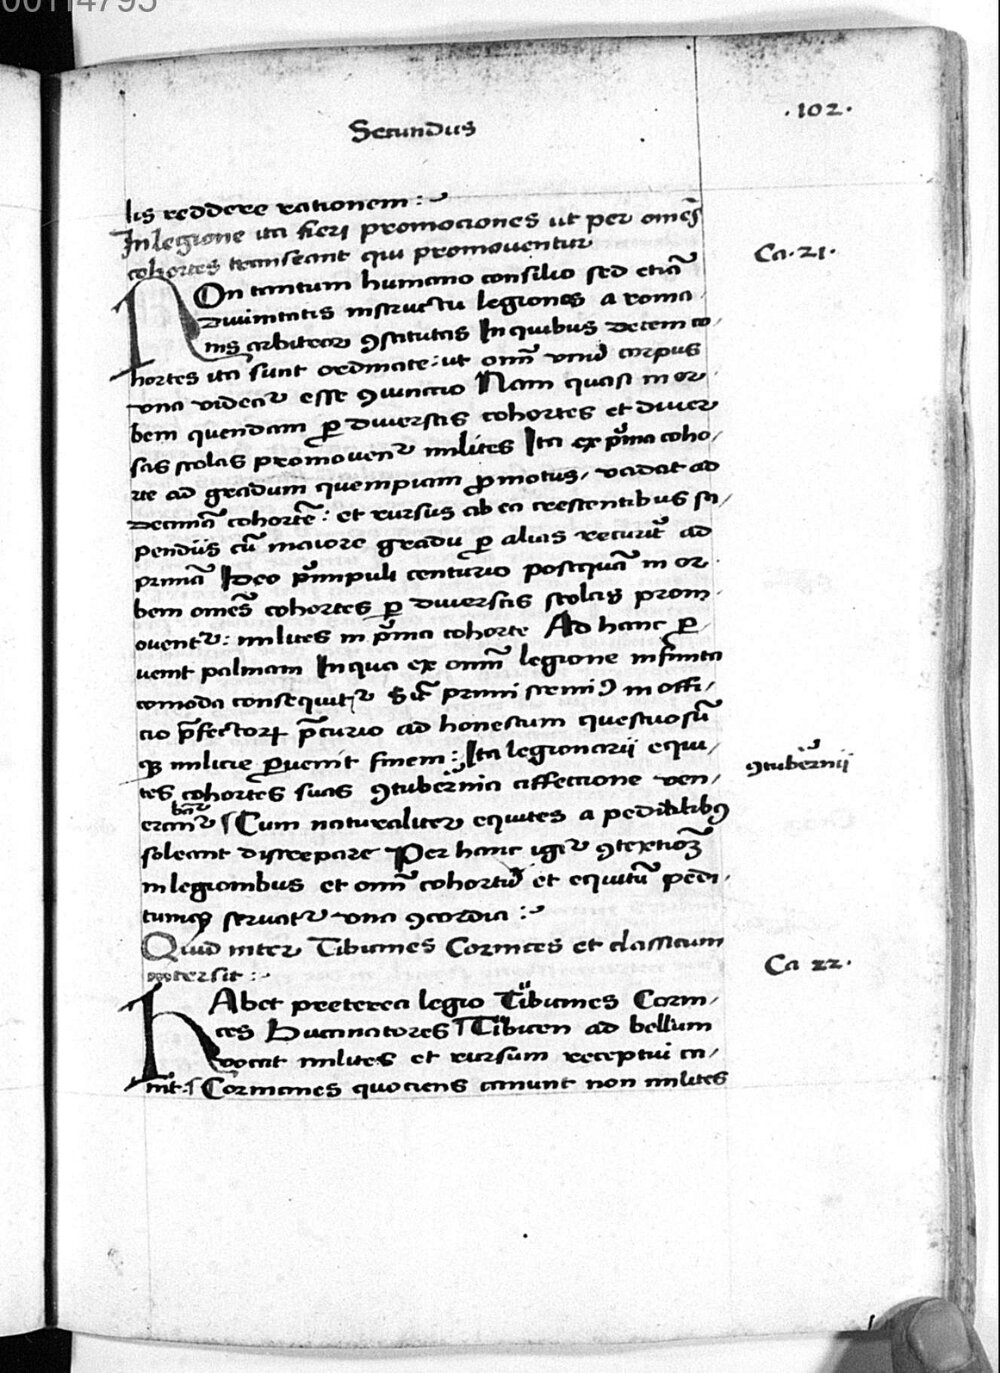 00114795
.102.
Secundus
lis reddere rationem :~
In legione ita fieri promociones ut per om̃es
cohortes transeant qui promoventur
Ca. 21.
NOn tantum humano consilio sed etiã
Divinitatis instructu legiones a roma
nis arbitror ꝯstitutas In quibus decem co/
hortes ita sunt ordinate: ut om̃i vnũ corpus
vna videatᷣ esse ꝯiunctio Nam quasi in or
bem quendam ꝑ diversas cohortes et diver
sas scolas promoventᷣ milites Ita ex pᷣma coho/
rte ad gradum quempiam ꝓmotus, vadat ad
decimã cohortẽ: et rursus ab ea crescentibus sti/
pendiis cũ maiore gradu ꝑ alias recurit᷑ ad
primã Ideo pᷣmipuli centurio postquã in or
bem om̃es cohortes ꝑ diversas scolas prom
oventᷣ: milites in pᷣma cohorte Ad hanc ꝑ
venit palmam In qua ex om̃i legione infinita
comoda consequitᷣ Sic̃ primi scrinij in offi/
cio p̃fectorꝝ p̃turio ad honestum questuosũ
qꝫ milicie ꝑvenit finem: Ita legionarii equi/
tes cohortes suas ꝯtuberᷣnia affectione ven/
ꝯtuberᷣnii
bãtᷣ
erantᷣ Cum naturaliter equites a peditibꝰ
soleant discrepare Per hanc igiᷣ ꝯtextioꝫ
in legionibus et om̃i cohortiũ et equitũ pedi/
tumqꝫ servatᷣ vna ꝯcordia :~
Quid inter Tibicines Cornices et classicum
intersit :~
Ca 22.
HAbet preterea legio Tibicines Corni/
ces Buccinatores Tibicen ad bellum
vocat milites et rursum receptui ca/
nit: Cornicines quociens canunt non milites